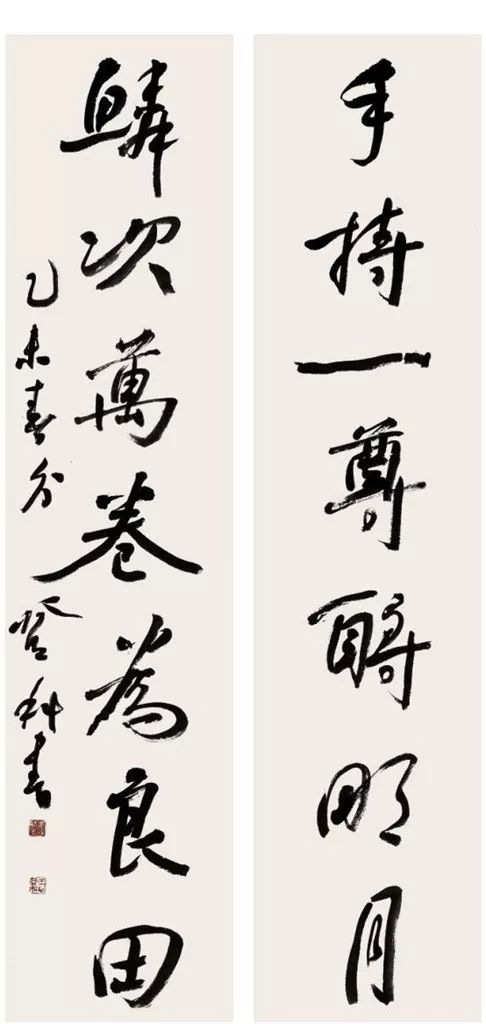 手持一尊酹明月
鳞次萬卷為良田
乙未春分 登科書